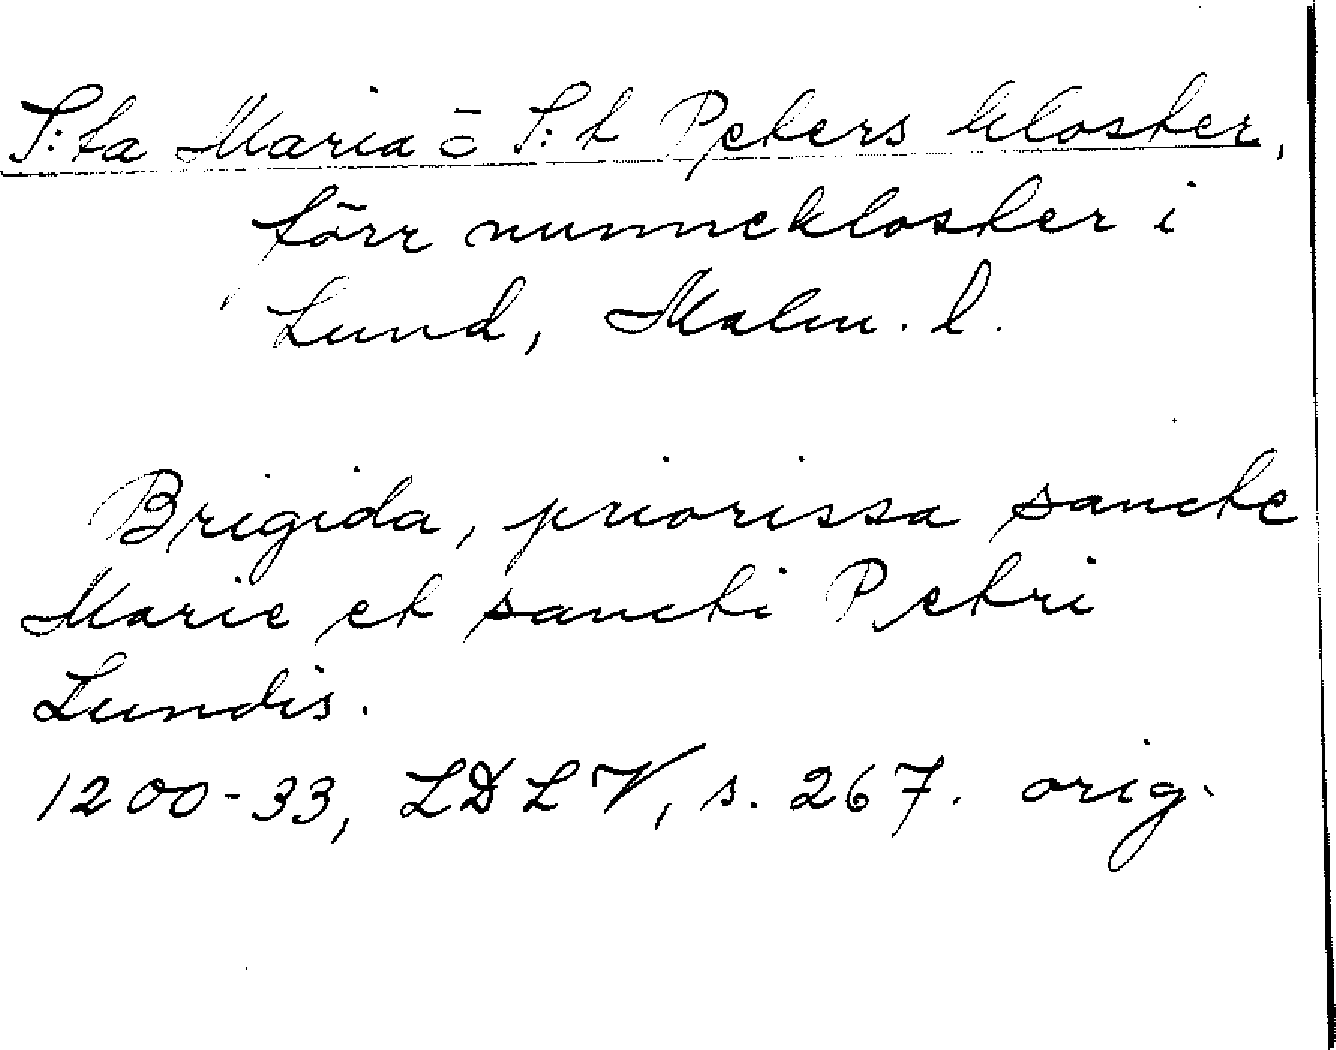 S:ta Maria o S:t Peters kloster,
förr nunnekloster i
Lund, Malm. l.
Brigida, priorissa sancte
Marie et sancti Petri
Lundis.
1200-33, LDLV, s. 267. orig.